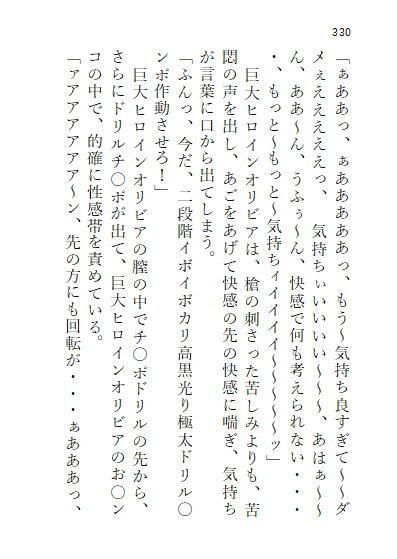 330
「ぁああっ、ぁあああああっ、もう〜気持ち良すぎて〜〜ダ
メぇえええええっ、　気持ちぃいいいい〜〜〜、あはぁ〜〜
ん、ああ〜ん、うふぅ〜ん、快感で何も考えられない・・・
・、もっと〜もっと〜気持ちィイイイイ〜〜〜〜〜ッ」
　巨大ヒロインオリビアは、槍の刺さった苦しみよりも、苦
悶の声を出し、あごをあげて快感の先の快感に喘ぎ、気持ち
が言葉に口から出てしまう。
「ふんっ、今だ、二段階イボイボカリ高黒光り極太ドリル〇
ンポ作動させろ！」
　巨大ヒロインオリビアの膣の中でチ〇ポドリルの先から、
さらにドリルチ〇ポが出て、巨大ヒロインオリビアのお〇ン
コの中で、的確に性感帯を責めている。
「ァアアアアアア〜ン、先の方にも回転が・・・ぁあああっ、